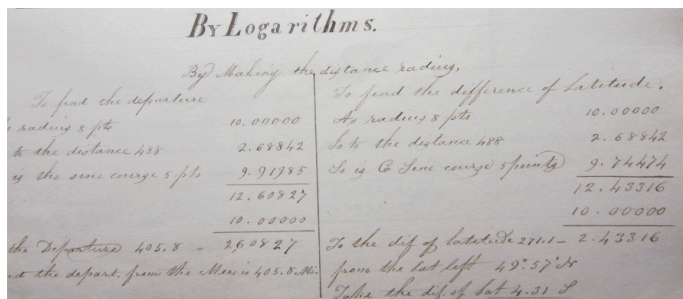 By Logarithms.
By Making the distance radius.
To find the departure
radius 8 pts 10.00000
to the distance 488 2.68842
is the sine course 5 pts 9.91985
12.60827
10.00000
the Departure 405.8 - 2.60827
the depart. from the Meri is 405.8 Mi
To find the difference of Latitude.
As radius 8 pts 10.00000
So to the distance 488 2.68842
So is Co Sine course 5 points 9.74474
12.43316
10.00000
To the dif. of Latitude 271.1 - 2.43316
from the Lat left 49°.57' N
Take the dif. of Lat 4.31 S